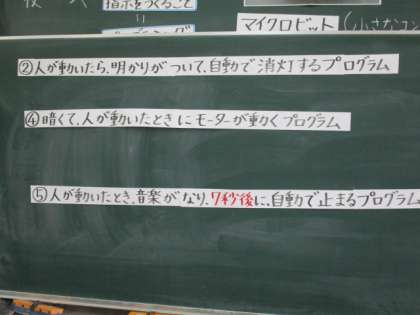 指示をつくること
=
マイクロビット(小さなコン
②人が動いたら、明かりがついて、自動で消灯するプログラム
④暗くて、人が動いたときにモーターが動くプログラム
⑤人が動いたとき、音楽がなり、7秒後に、自動で止まるプログラム